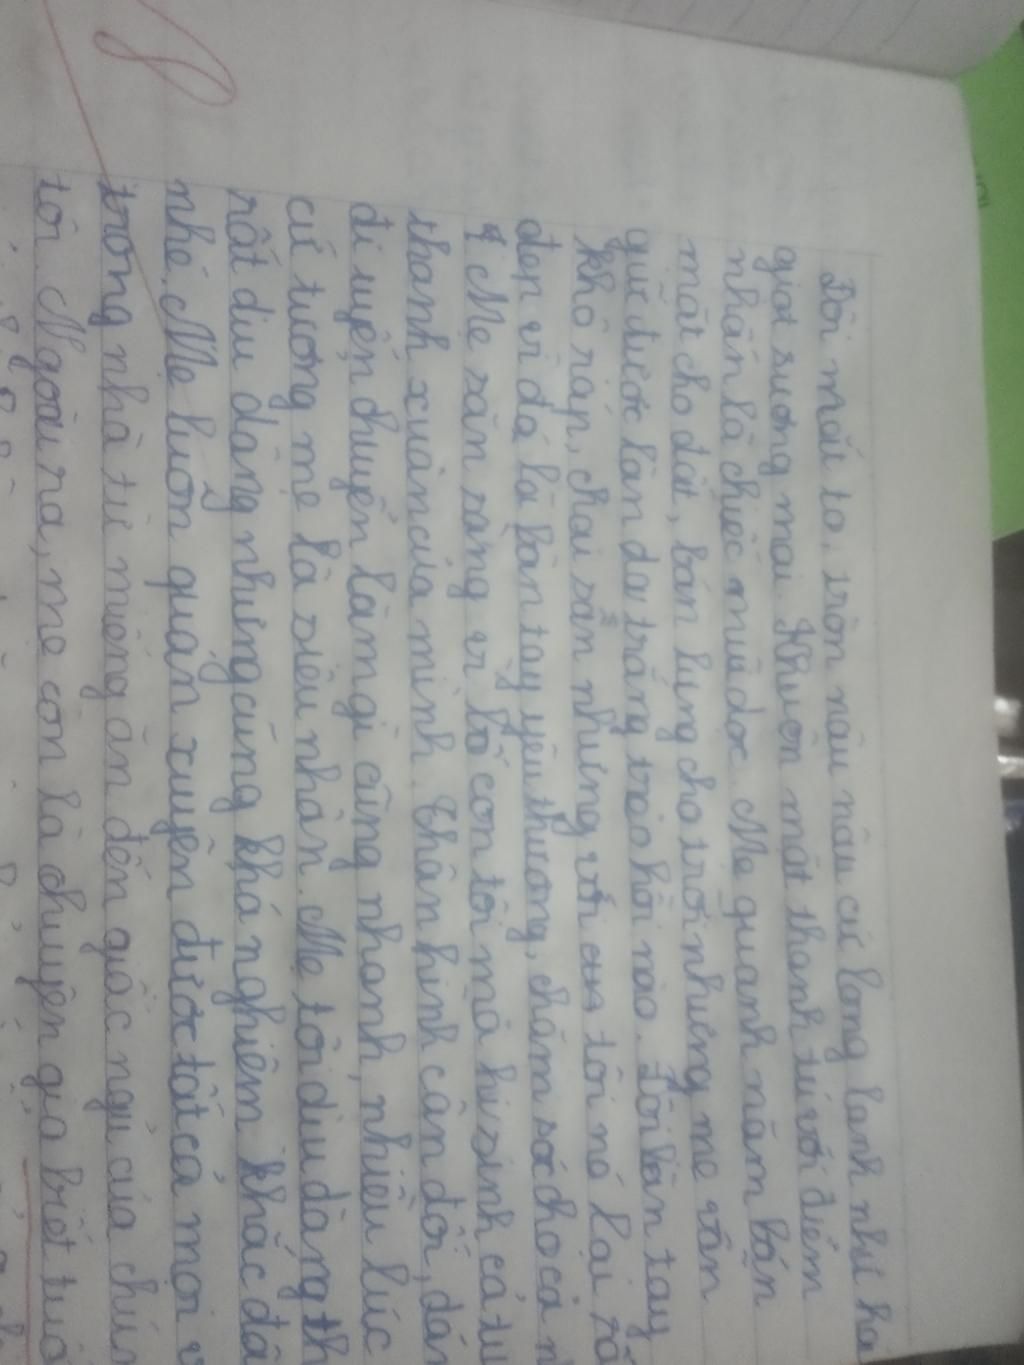 Đôi mắt to, tròn nâu nâu cứ long lanh như
giọt sương mai. Khuôn mặt thanh tú với điểm
nhấn là chiếc mũi dọc. Mẹ quanh năm bán
mặt cho đất, bán lưng cho trời nhưng mẹ vẫn
giữ được làn da trắng trẻo hồi nào. Đôi bàn tay
khô ráp, chai sần nhưng với tôi nó lại
đẹp vì đó là bàn tay yêu thương, chăm sóc cho cả
Mẹ sẵn sàng vì bố con tôi mà hi sinh cả
thanh xuân của mình. Thân hình cân đối,
đi uyển chuyển làm gì cũng nhanh, nhiều lúc
cứ tưởng mẹ là siêu nhân. Mẹ tôi dịu dàng
rất dịu dàng nhưng cũng khá nghiêm khắc
nhé. Mẹ luôn quán xuyến được tất cả mọi
trong nhà từ miếng ăn đến giấc ngủ của
tôi. Ngoài ra, mẹ còn là chuyên gia biết